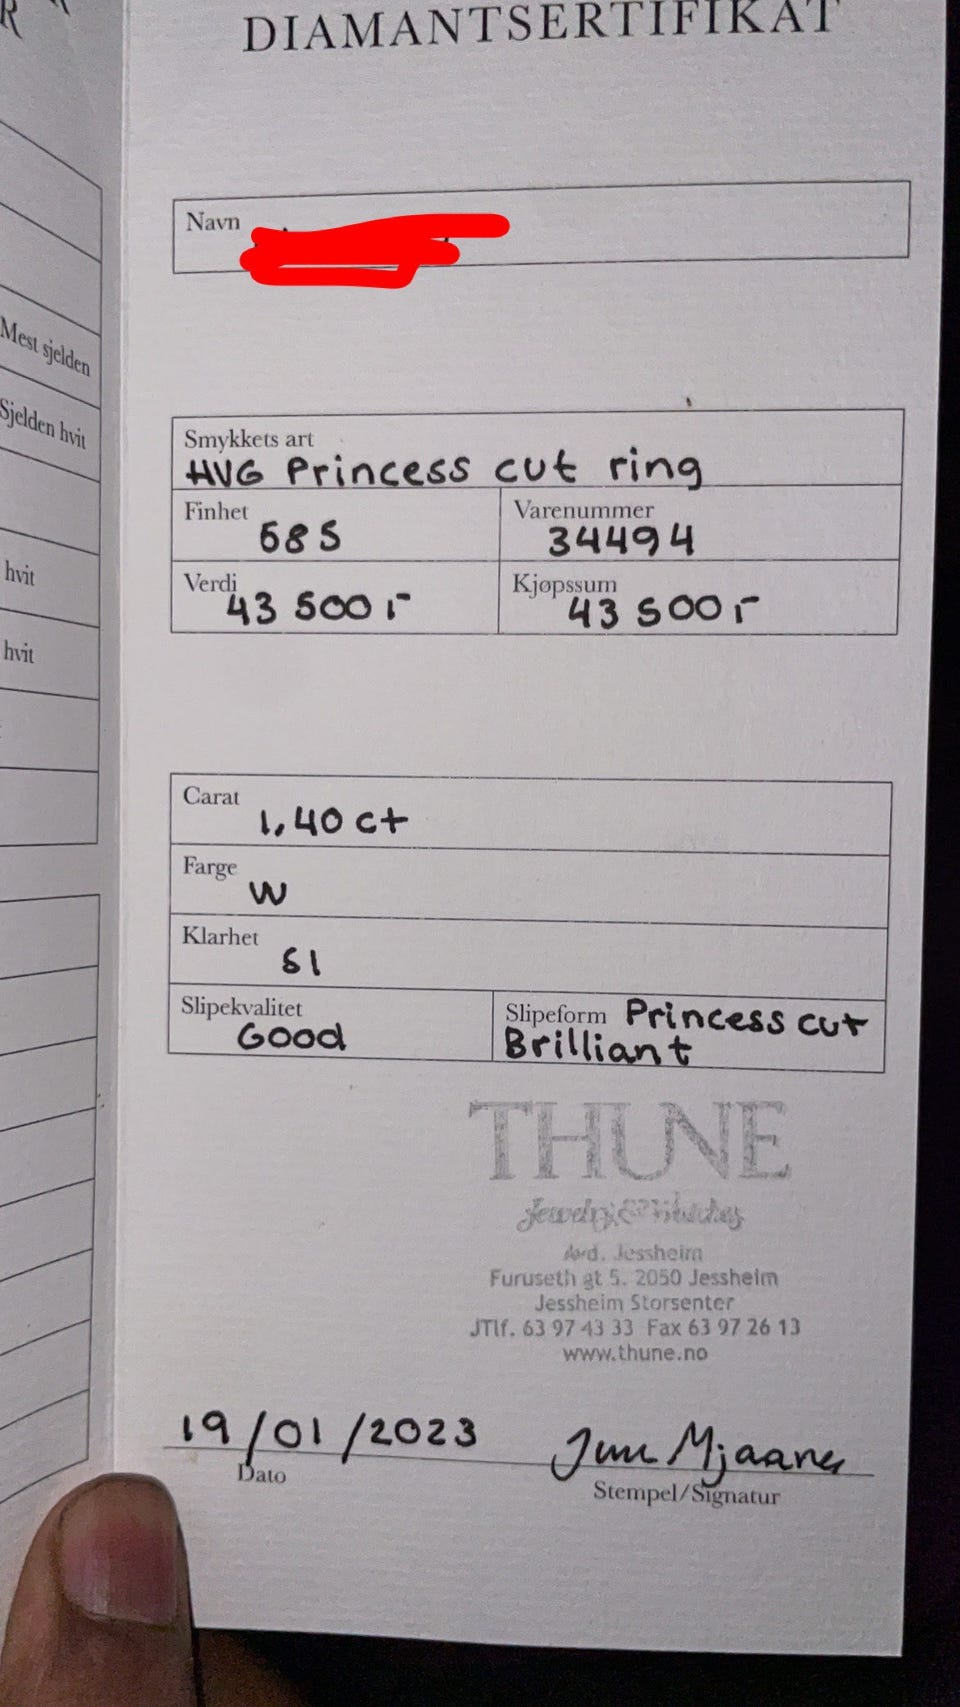 R
DIAMANTSERTIFIKAT
Navn
Mest sjelden
Sjelden hvit
hvit
hvit
Smykkets art
HVG Princess cut ring
Finhet
585
Varenummer
34494
Verdi
43 500,-
Kjøpssum
43 500,-
Carat
1,40 ct
Farge
W
Klarhet
SI
Slipekvalitet
Good
Slipeform Princess cut
Brilliant
THUNE
Jewelry & Watches
Avd. Jessheim
Furuseth gt 5. 2050 Jessheim
Jessheim Storsenter
JTlf. 63 97 43 33 Fax 63 97 26 13
www.thune.no
19/01/2023
Dato
Mjaanes
Stempel/Signatur